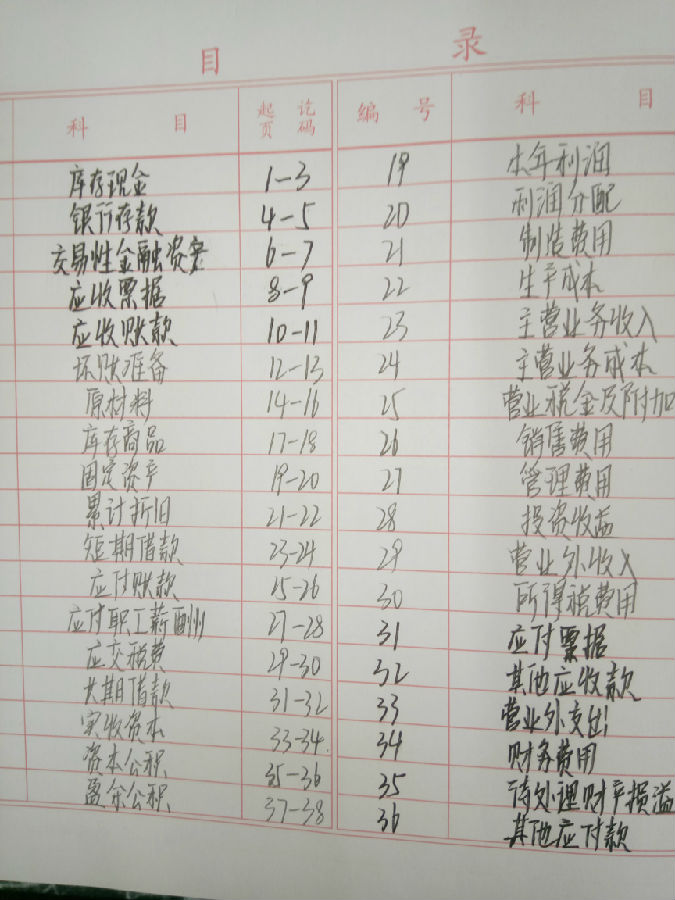 目 录
科 目 起讫页码 编 号 科 目
库存现金 1-3 19 本年利润
银行存款 4-5 20 利润分配
交易性金融资产 6-7 21 制造费用
应收票据 8-9 22 生产成本
应收账款 10-11 23 主营业务收入
坏账准备 12-13 24 主营业务成本
原材料 14-16 25 营业税金及附加
库存商品 17-18 26 销售费用
固定资产 19-20 27 管理费用
累计折旧 21-22 28 投资收益
短期借款 23-24 29 营业外收入
应付账款 25-26 30 所得税费用
应付职工薪酬 27-28 31 应付票据
应交税费 29-30 32 其他应收款
长期借款 31-32 33 营业外支出
实收资本 33-34 34 财务费用
资本公积 35-36 35 待处理财产损溢
盈余公积 37-38 36 其他应付款